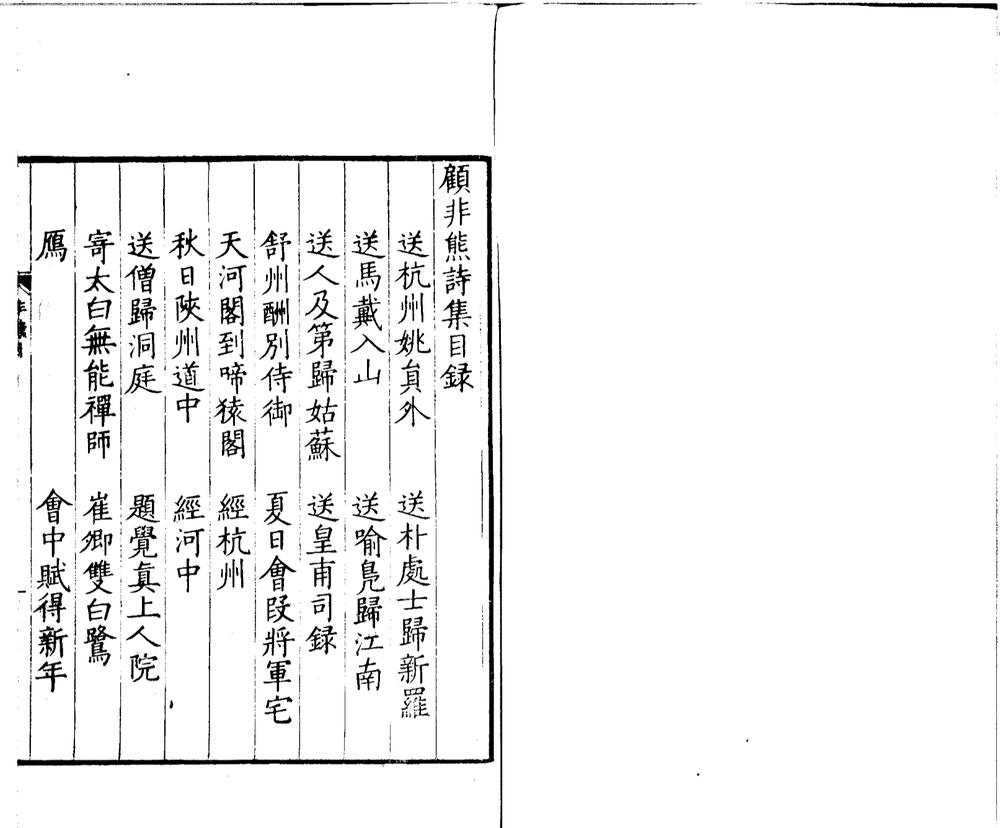 顧非熊詩集目録
送杭州姚貟外　送朴處士歸新羅
送馬戴入山　送喻鳬歸江南
送人及第歸姑蘇　送皇甫司録
舒州酬別侍御　夏日會段將軍宅
天河閣到啼猿閣　經杭州
秋日陝州道中　經河中
送僧歸洞庭　題覺真上人院
寄太白無能禪師　崔卿雙白鷺
鴈　會中賦得新年